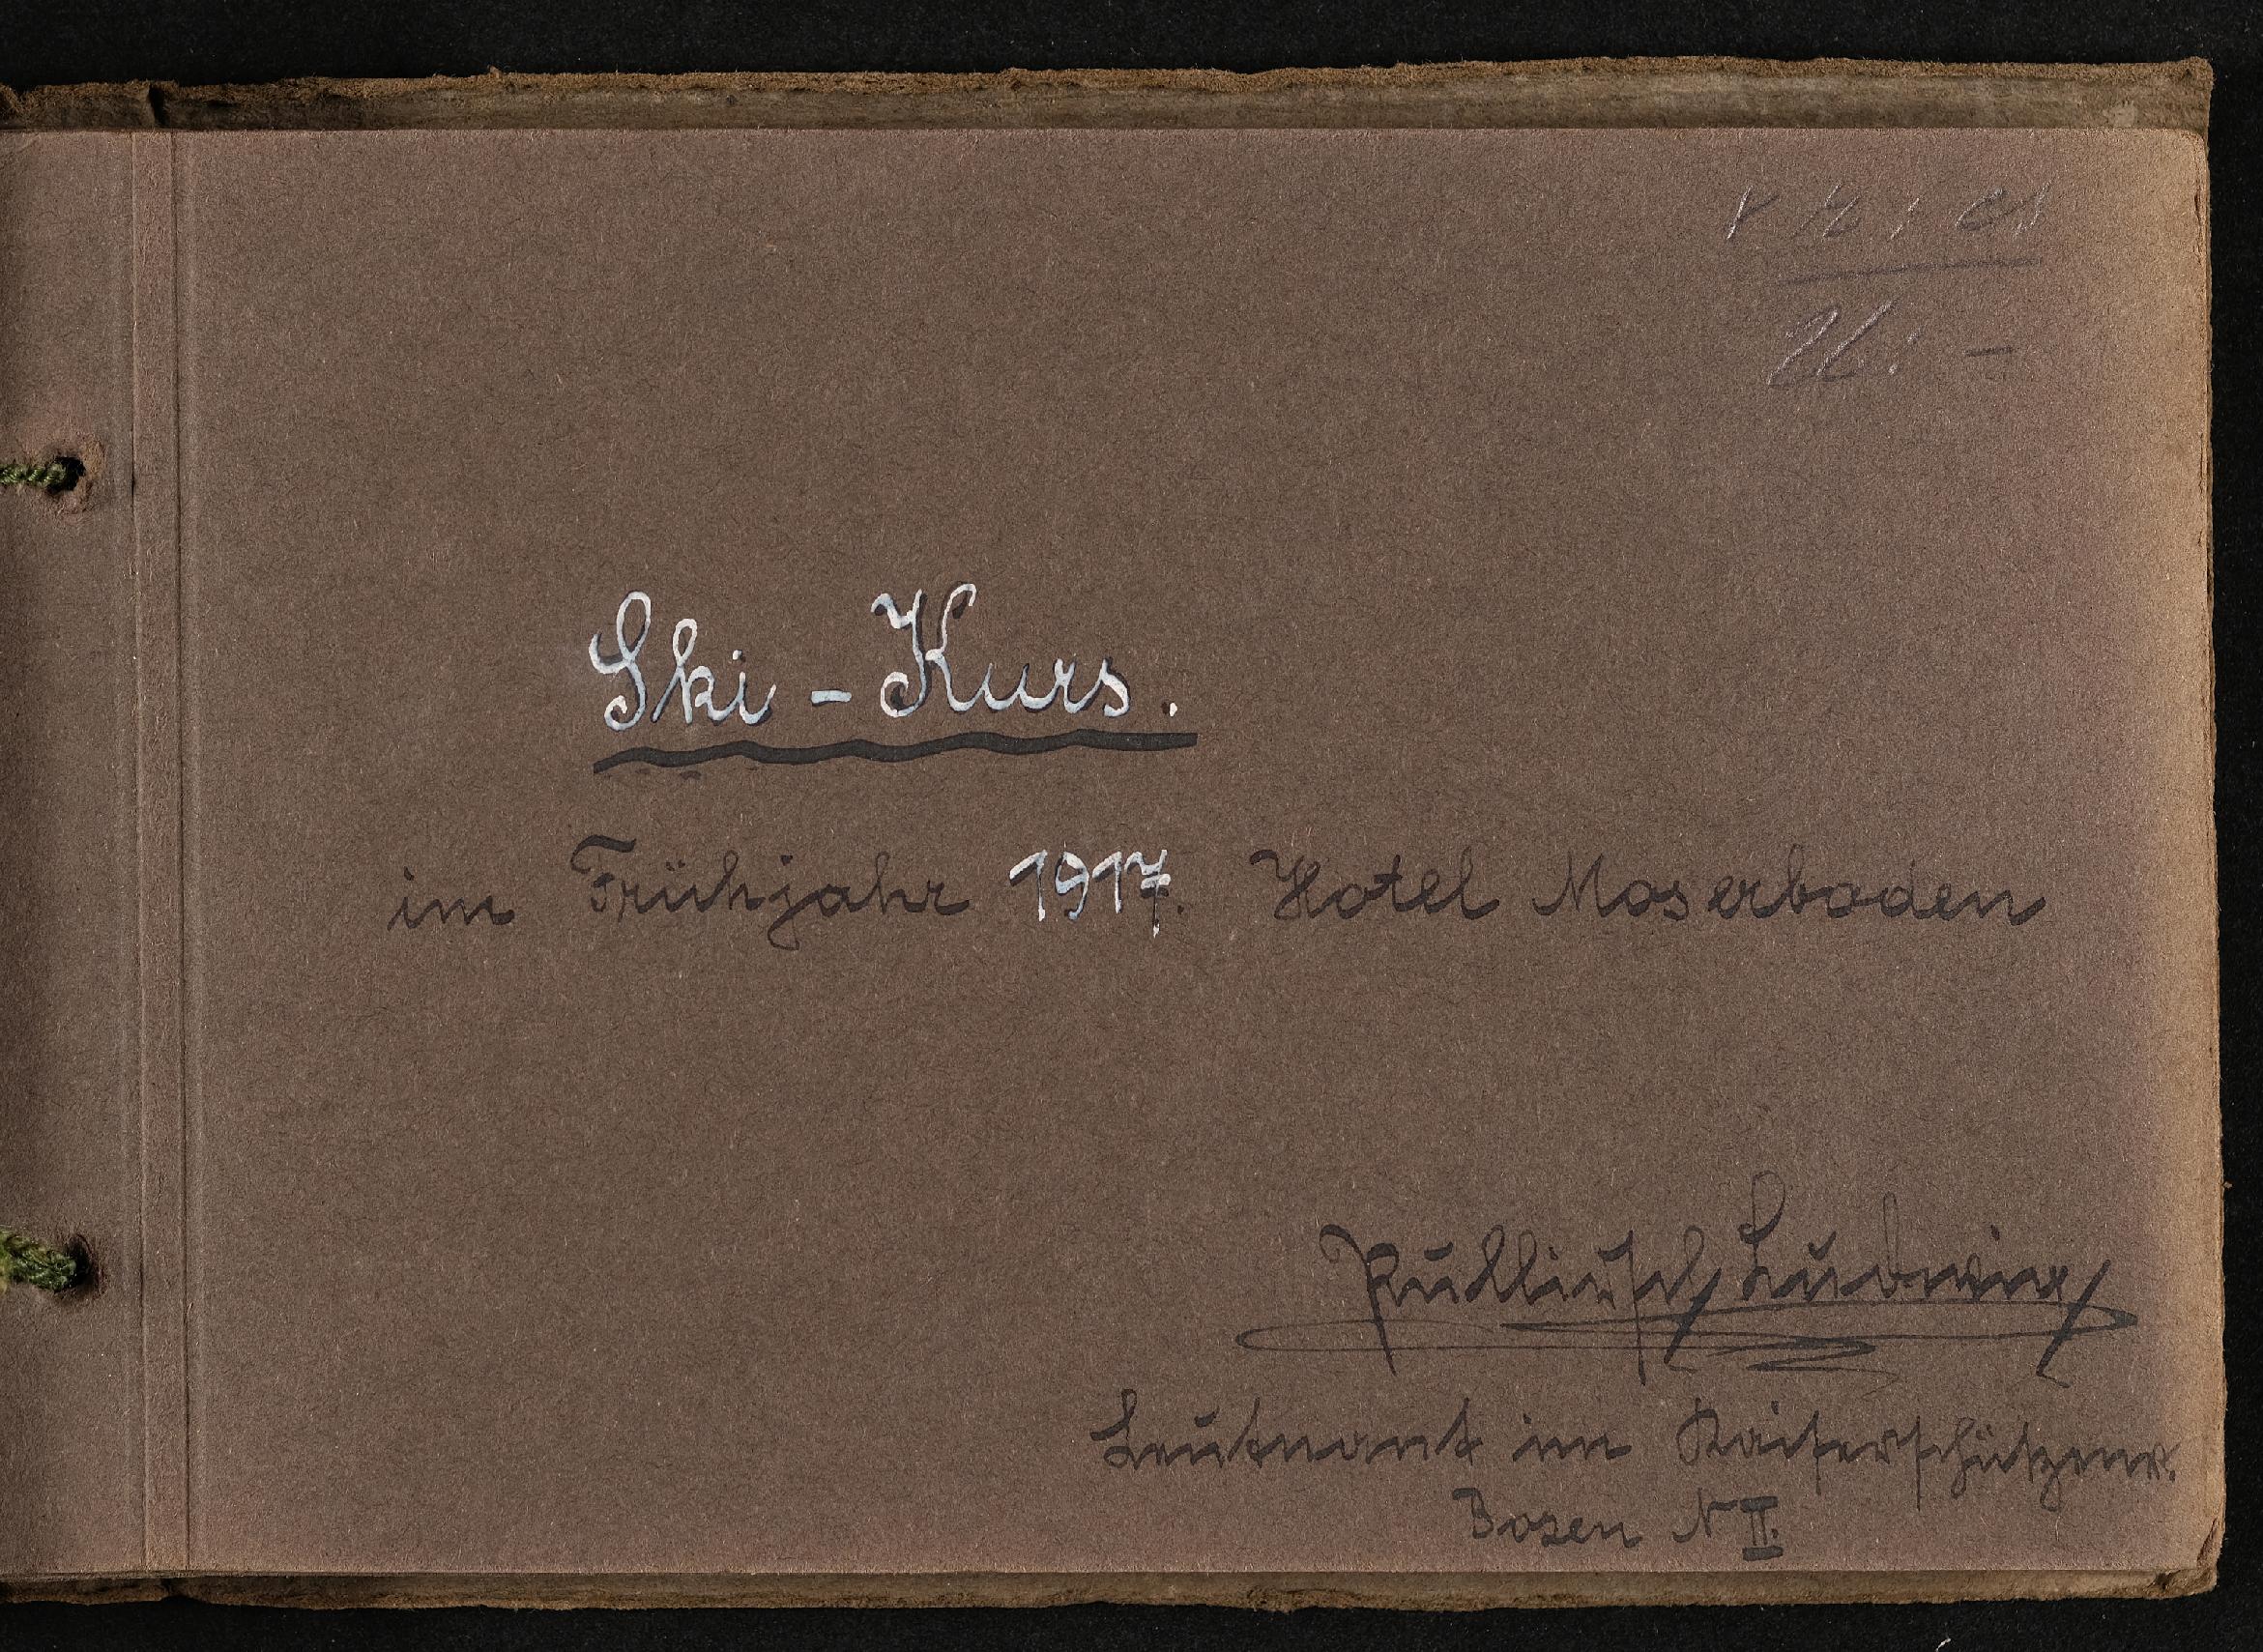 Ski-Kurs.
im Frühjahr 1917. Hotel Moserboden
Ludwig
Leutnant im Kaiserschützenr.
Bozen N II.